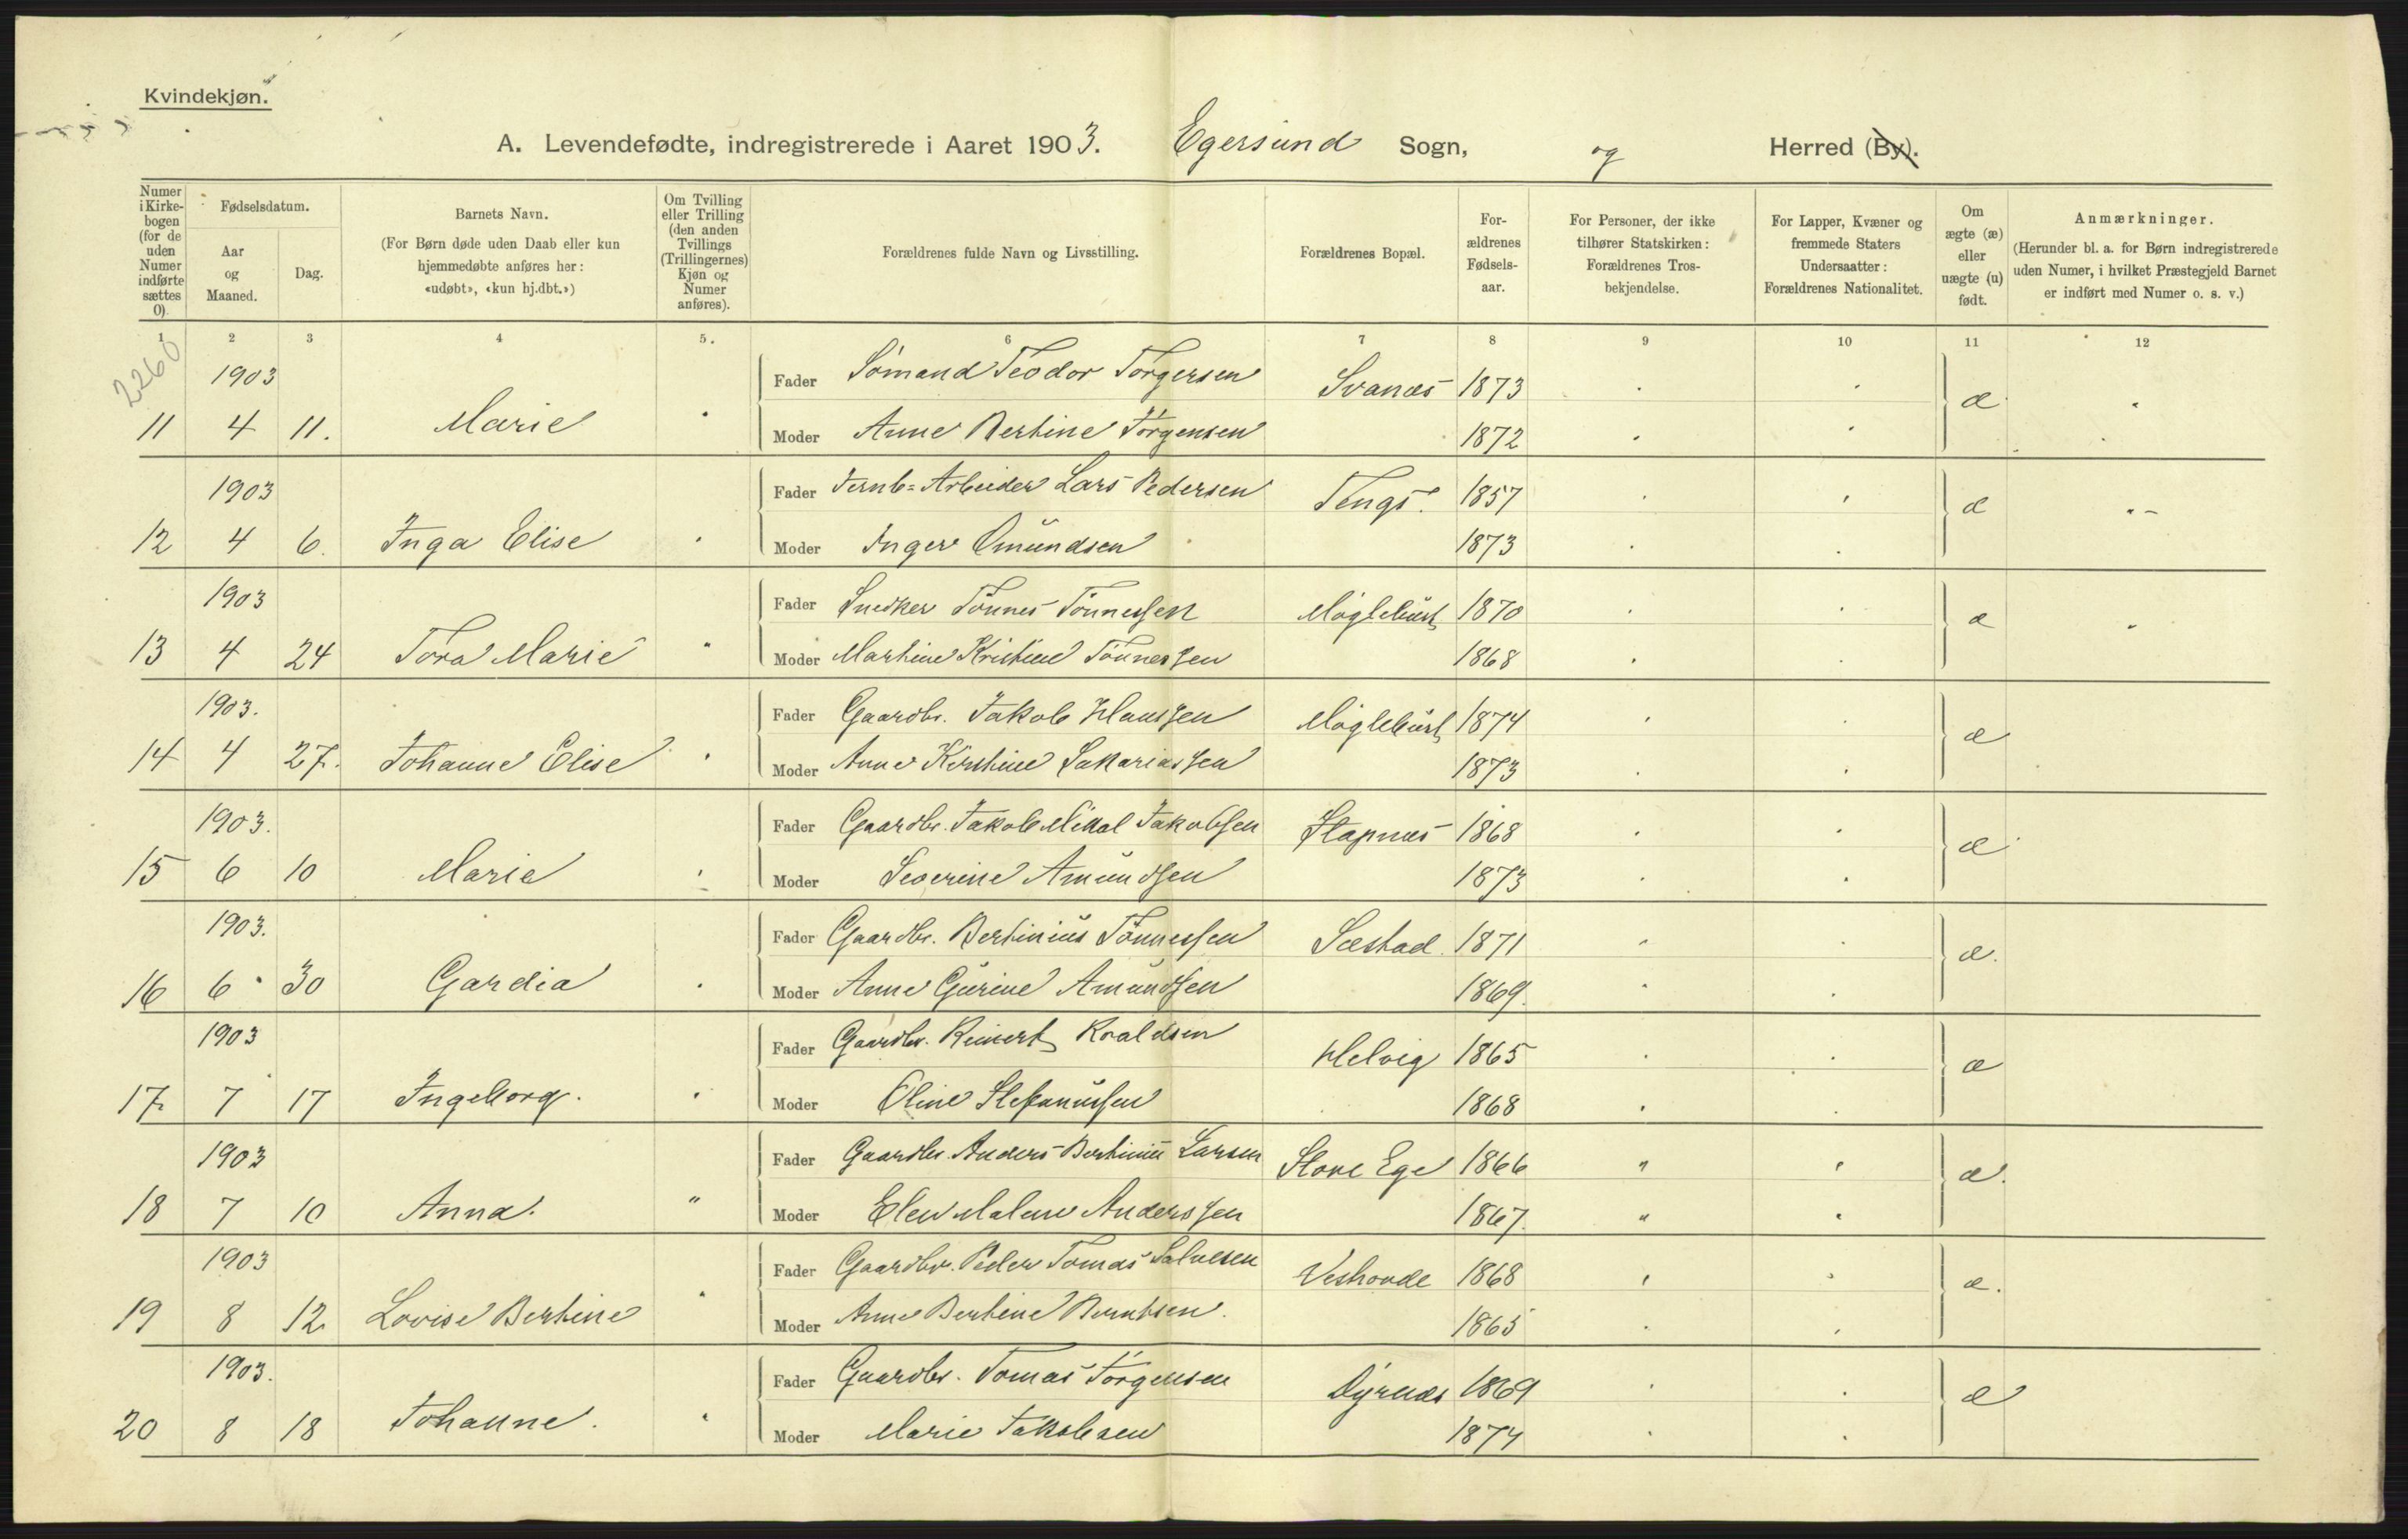 Kvindekjøn.
A. Levendefødte, indregistrerede i Aaret 1903. Egersund Sogn, og Herred (By).
Numer i Kirkebogen (for de uden Numer indførte sættes 0)
Fødselsdatum.
Aar og Maaned.
Dag.
Barnets Navn.
(For Børn døde uden Daab eller kun hjemmedøbte anføres her: «udøbt», «kun hj.dbt.»)
Om Tvilling eller Trilling (den anden Tvillings (Trillingernes) Kjøn og Numer anføres).
Forældrenes fulde Navn og Livsstilling.
Forældrenes Bopæl.
Forældrenes Fødselsaar.
For Personer, der ikke tilhører Statskirken: Forældrenes Trosbekjendelse.
For Lapper, Kvæner og fremmede Staters Undersaatter: Forældrenes Nationalitet.
Om ægte (æ) eller uægte (u) født.
Anmærkninger.
(Herunder bl. a. for Børn indregistrerede uden Numer, i hvilket Præstegjeld Barnet er indført med Numer o. s. v.)
1 2 3 4 5. 6 7 8 9 10 11 12
2260
1903 Fader Sømand Teodor Torgersen Svanæs 1873 æ
11 4 11. Marie Moder Anne Bertine Jørgensen 1872
1903 Fader Jernb=Arbeider Lars Pedersen Tengs. 1857 æ
12 4 6. Inga Elise Moder Inger Omundsen 1873
1903 Fader Snedker Tønnes Tønnessen Møglebust 1870 æ
13 4 24 Tora Marie Moder Martine Kristine Tønnessen 1868
1903. Fader Gaardbr. Jakob Hanssen Møglebust 1874 æ
14 4 27. Johanne Elise Moder Anne Kirstine Sakariassen 1873
1903. Fader Gaardbr. Jakob Mikal Jakobsen Stapnæs 1868 æ
15 6 10 Marie Moder Severine Amundsen 1873
1903. Fader Gaardbr. Bertinius Tønnessen Sæstad. 1871 æ.
16 6 30 Gardia Moder Anne Gurine Amundsen 1869.
1903 Fader Gaardbr. Reinert Roaldsen Helvig 1865 æ
17. 7 17 Ingeborg. Moder Oline Stefanussen 1868
1903 Fader Gaardbr. Anders Bertinius Larsen Store Ege 1866 æ.
18 7 10 Anna. Moder Elen Malene Anderssen 1867.
1903 Fader Gaardbr. Peder Tomas Salvesen Veshovde 1868 æ.
19 8 12. Lovise Bertine Moder Anne Bertine Berntsen. 1865
1903. Fader Gaardbr. Tomas Jørgensen Dyrnæs 1869 æ
20 8 18 Johanne. Moder Marie Jakobsen 1874